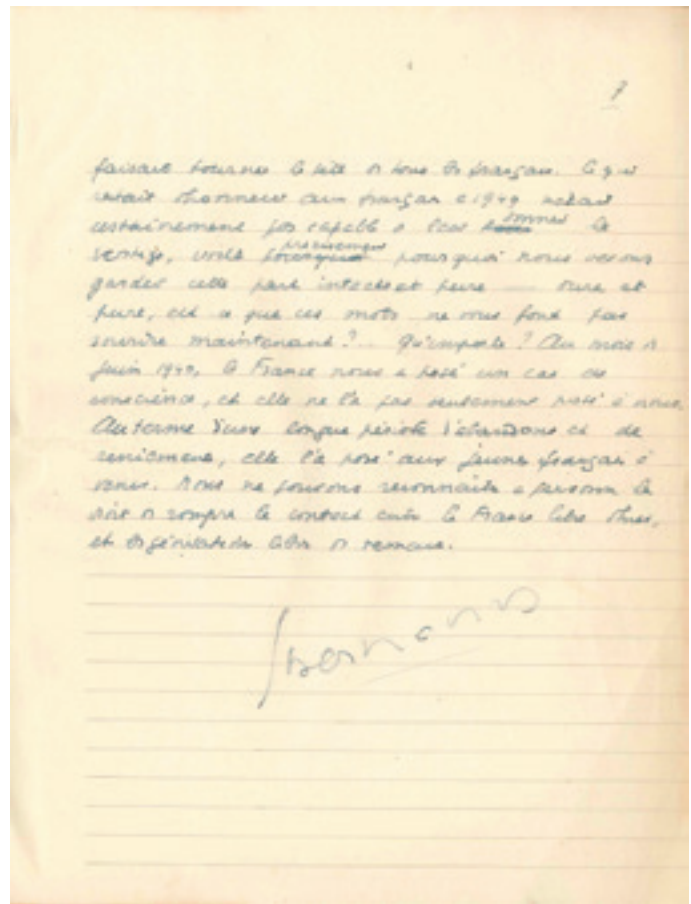 7
faisait tourner la tête à tous les français. Ce qui
restait d'honneur aux français en 1940 n'était
certainement pas capable de leur donner le
vertige, voilà précisément pourquoi nous devons
garder cette part intacte et pure — dure et
pure, est-ce que ces mots ne vous font pas
sourire maintenant ?.. Qu'importe ? Au mois de
Juin 1940, la France nous a posé un cas de
conscience, et elle ne l'a pas seulement posé à nous.
Au terme d'une longue période d'abandons et de
reniements, elle l'a posé aux jeunes français à
venir. Nous ne pouvons reconnaître à personne le
droit de rompre le contact entre la France libre
et générations de demain.
Bernanos